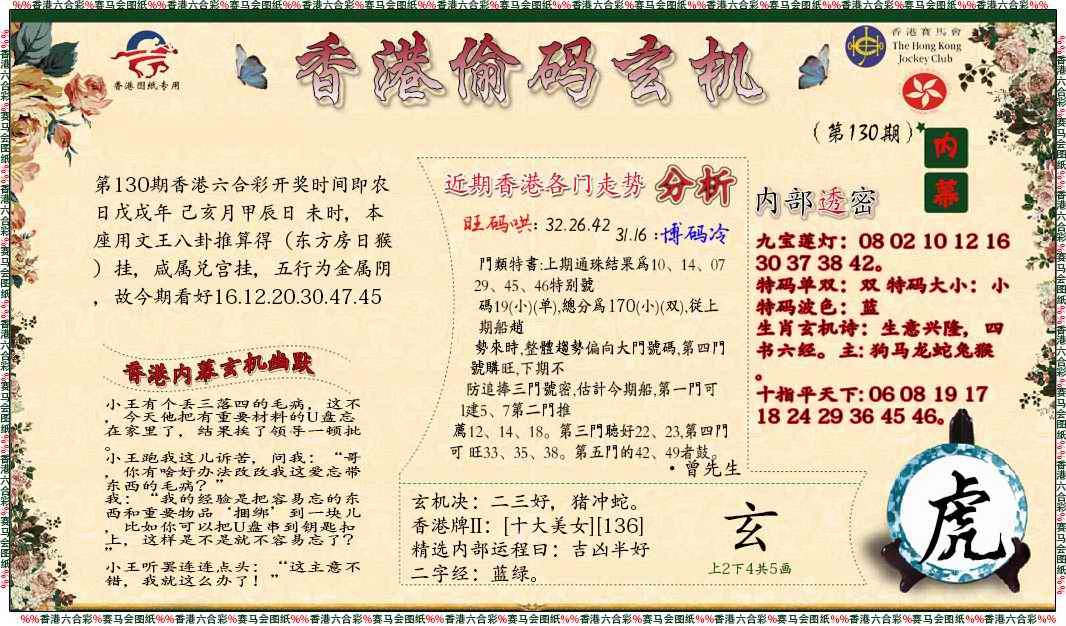 %%香港六合彩%赛马会图纸%%香港六合彩%赛马会图纸%%香港六合彩%赛马会图纸%%香港六合彩%赛马会图纸%%香港六合彩%赛马会图纸%%香港六合彩%赛马会图纸%%香港六合彩%%
香港图纸专用
香港偷码玄机
香港賽馬會
The Hong Kong
Jockey Club
(第130期)
内
幕
第130期香港六合彩开奖时间即农
日戊戌年 己亥月甲辰日 未时，本
座用文王八卦推算得（东方房日猴
）挂，咸属兑宫挂，五行为金属阴
，故今期看好16.12.20.30.47.45
香港内幕玄机幽默
小王有个丢三落四的毛病，这不
，今天他把有重要材料的U盘忘
在家里了，结果挨了领导一顿批
。
小王跑我这儿诉苦，问我：“哥
，你有啥好办法改改我这爱忘带
东西的毛病？”
我：“我的经验是把容易忘的东
西和重要物品‘捆绑’到一块儿
，比如你可以把U盘串到钥匙扣
上，这样是不是就不容易忘了？
”
小王听罢连连点头：“这主意不
错，我就这么办了！”
近期香港各门走势 分析
旺码哄: 32.26.42
31.16 :博码冷
門類特書:上期通珠結果爲10、14、07
29、45、46特别號
碼19(小)(单),總分爲170(小)(双),従上
期船趙
勢來時,整體趨勢偏向大門號碼,第四門
號購旺,下期不
防追捧三門號密,估計今期船,第一門可
l建5、7第二門推
薦12、14、18。第三門聽好22、23,第四門
可 旺33、35、38。第五門的42、49者鼓。
·曾先生
内部透密
九宝莲灯：08 02 10 12 16
30 37 38 42。
特码单双：双 特码大小：小
特码波色：蓝
生肖玄机诗：生意兴隆，四
书六经。主: 狗马龙蛇兔猴
。
十指平天下: 06 08 19 17
18 24 29 36 45 46。
玄机决：二三好，猪冲蛇。
香港牌II：[十大美女][136]
精选内部运程曰：吉凶半好
二字经：蓝绿。
玄
上2下4共5画
虎
%%香港六合彩%赛马会图纸%%香港六合彩%赛马会图纸%%香港六合彩%赛马会图纸%%香港六合彩%赛马会图纸%%香港六合彩%赛马会图纸%%香港六合彩%赛马会图纸%%香港六合彩%%